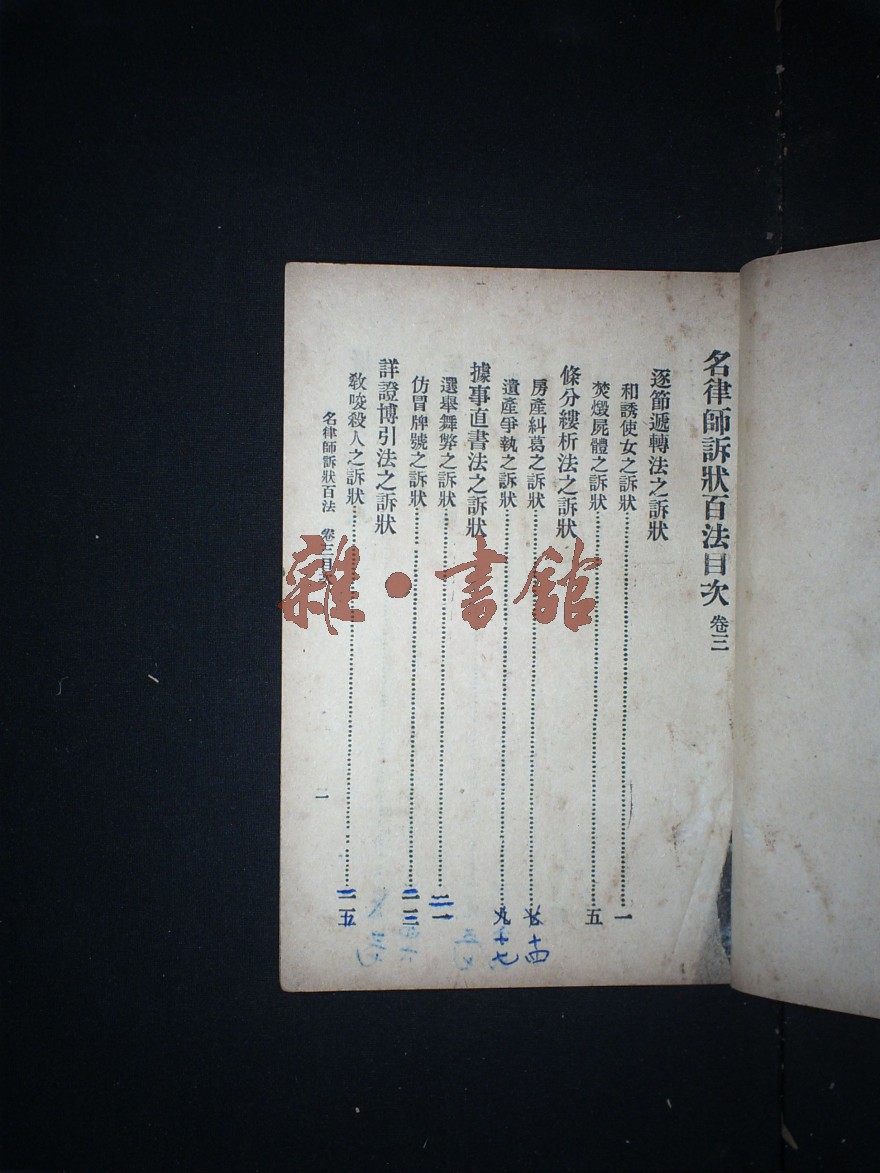 名律師訴狀百法目次 卷三
逐節遞轉法之訴狀
和誘使女之訴狀 一
焚燬屍體之訴狀 五
條分縷析法之訴狀
房產糾葛之訴狀 十四
遺產爭執之訴狀 十七
據事直書法之訴狀
選舉舞弊之訴狀 二一
仿冒牌號之訴狀 二三
詳證博引法之訴狀
教唆殺人之訴狀 二五
名律師訴狀百法 卷三目
一
雜·書館